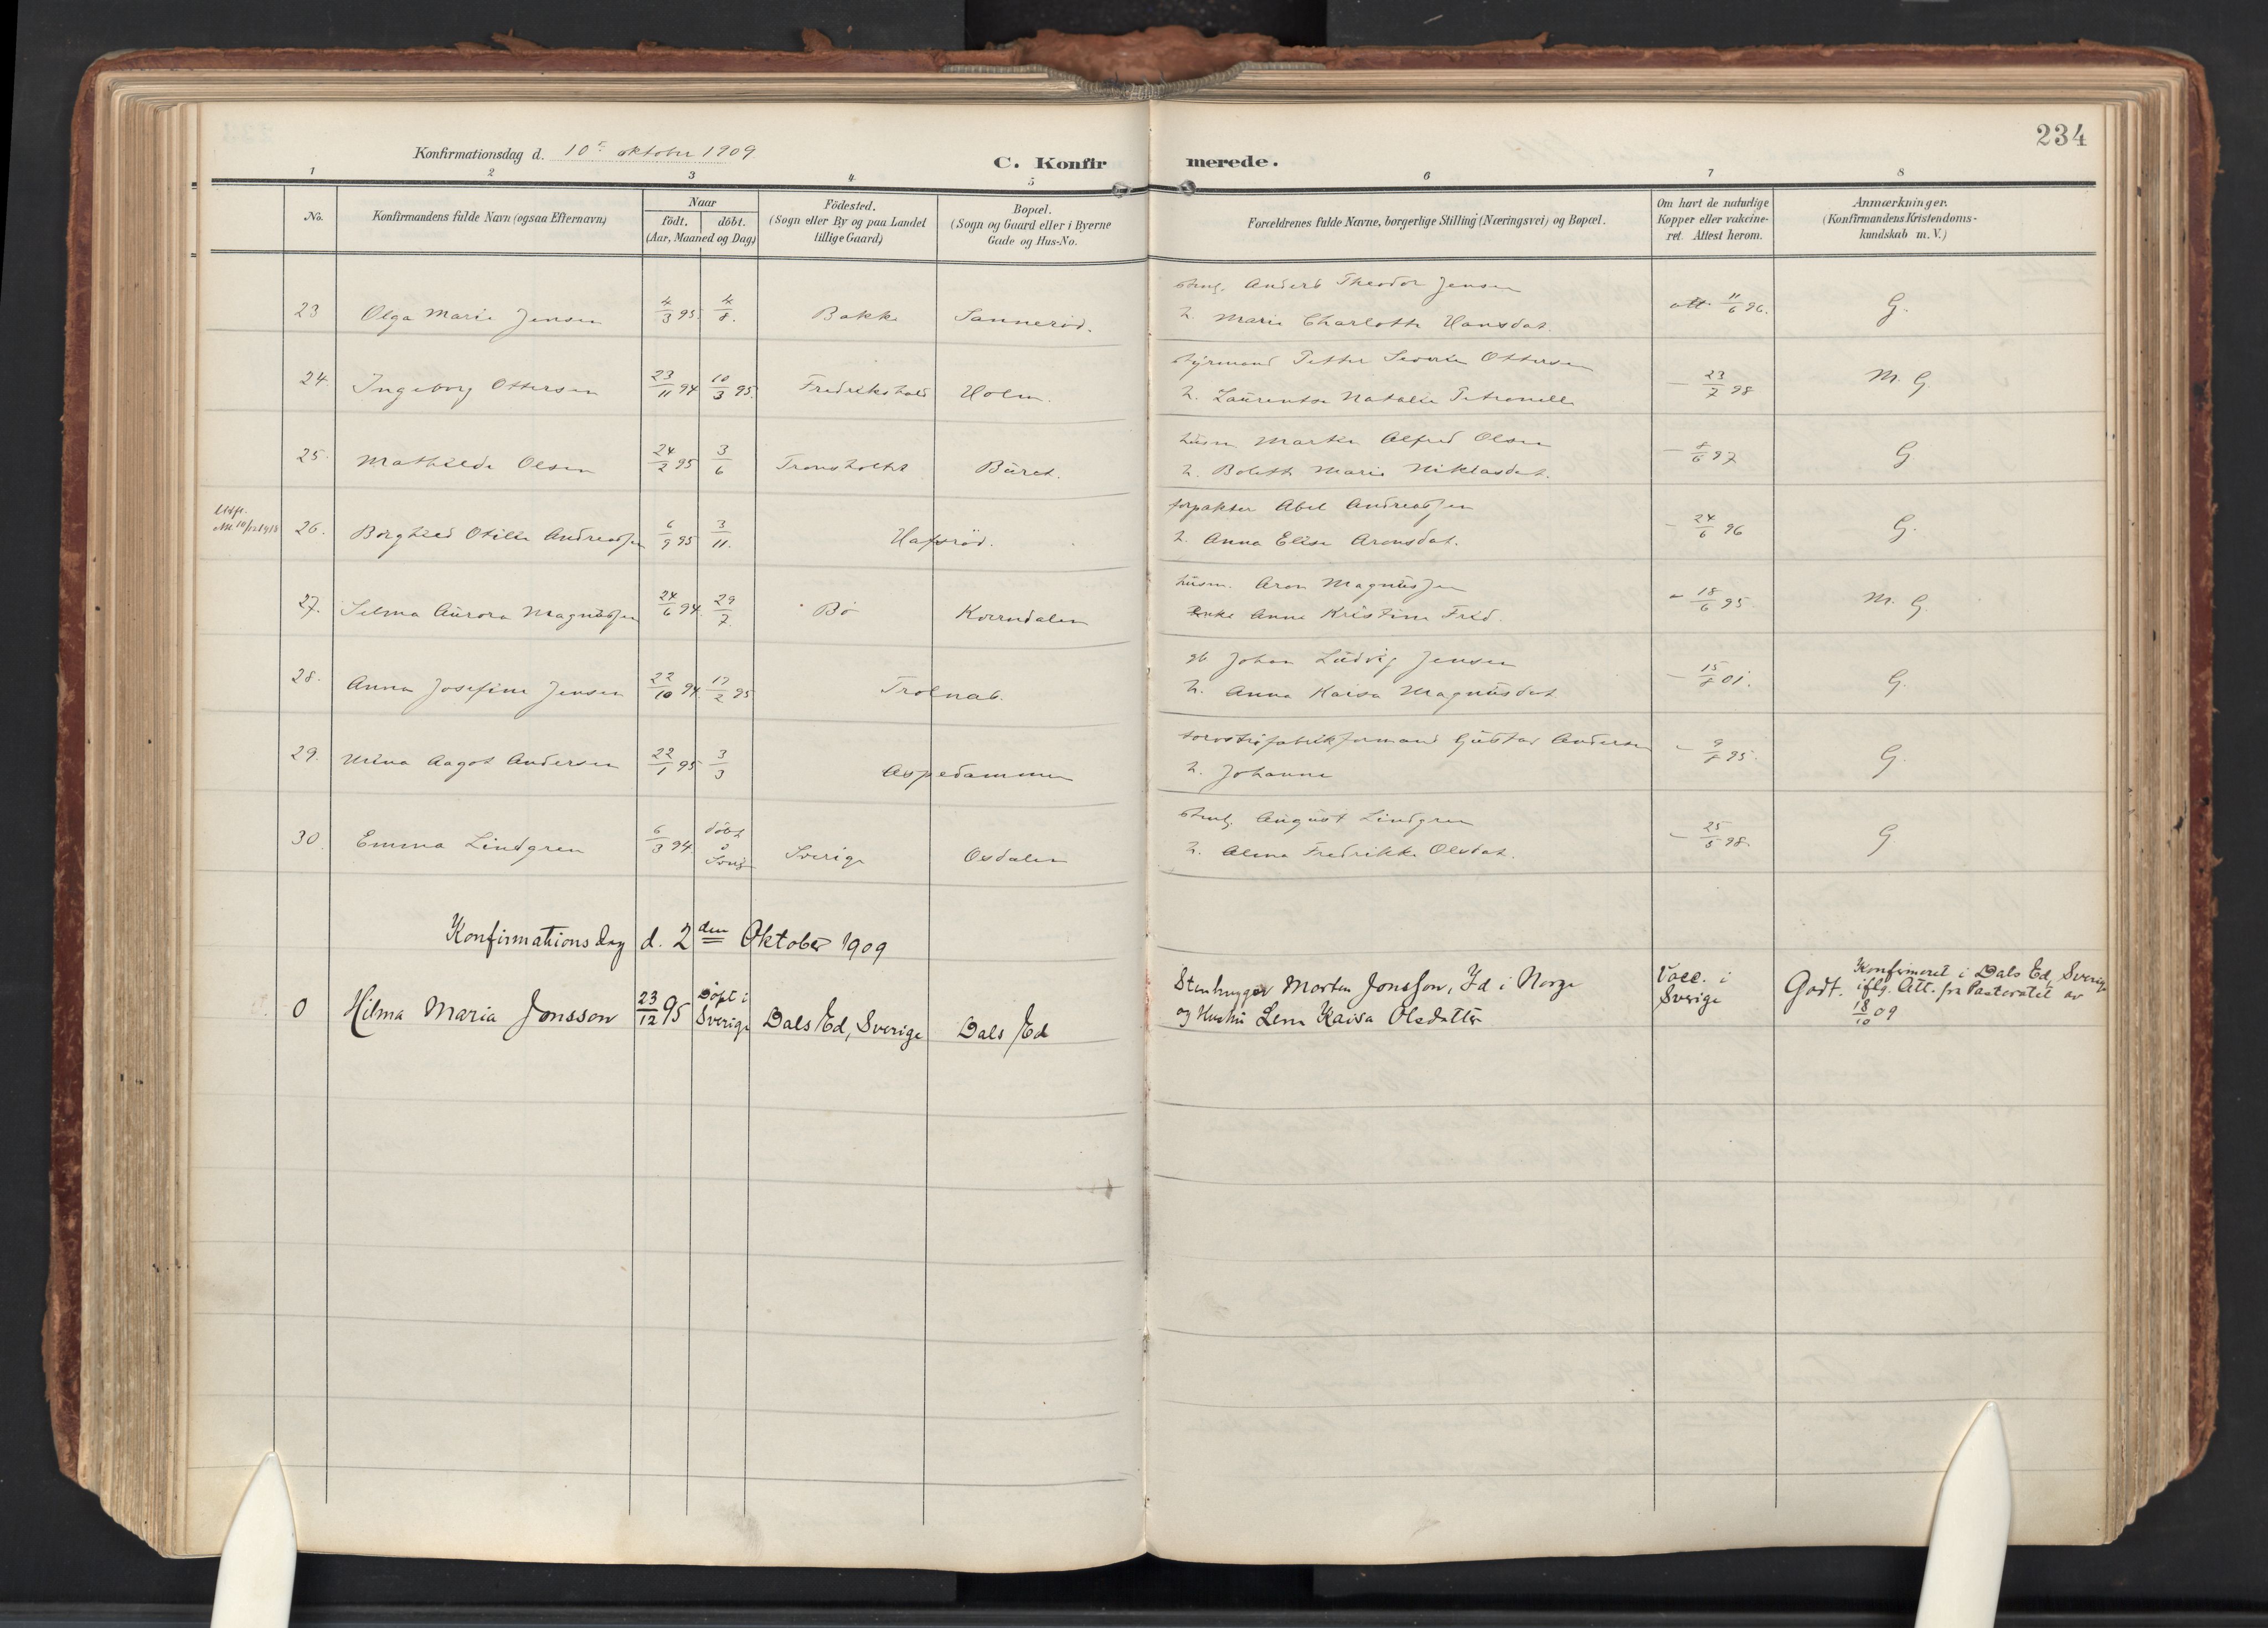 234
Konfirmationsdag d. 10de oktober 1909
C. Konfirmerede.
1 2 3 4 5 6 7 8
No.
Konfirmandens fulde Navn (ogsaa Efternavn)
Naar
födt. döbt.
(Aar, Maaned og Dag)
Födested.
(Sogn eller By og paa Landet
tillige Gaard)
Bopæl.
(Sogn og Gaard eller i Byerne
Gade og Hus-No.
Forældrenes fulde Navne, borgerlige Stilling (Næringsvei) og Bopæl.
Om havt de naturlige
Kopper eller vakcine-
ret. Attest herom.
Anmærkninger.
(Konfirmandens Kristendoms-
kundskab m. V.)
23 Olga Marie Jensen 4/3 95. 4/8. Bakke Sannerød. Anders Theodor Jensen att. 11/6 96. G.
h. Marie Charlotte Hansdat.
24. Ingeborg Ottersen 23/11 94 10/3 95. Fredrikshald Holm. styrmand Petter Severin Ottersen – 23/7 98 M. G.
h. Laurentse Natalie Petronelle
25. Mathilde Olsen 24/2 95 3/6 Tronsholtet Büret. husm Martin Alfred Olsen – 8/6 97 G
h. Bolette Marie Niklasdat.
Utfl.
26. Borghild Otilie Andreassen 6/9 95 3/11. Hafsrød. forpakter Abel Andreassen – 24/6 96 G.
h. Anna Elise Aronsdat.
27. Selma Aurora Magnussen 24/6 94. 29/7. Bø Korndalen husm. Aron Magnussen – 18/6 95 M. G.
Enke Anne Kristine Fred.
28. Anna Josefine Jensen 22/10 94. 17/2 95 Trolnab. gb Johan Ludvig Jensen – 15/8 01. G.
h. Anna Kaisa Magnusdat.
29. Aagot Andersen 22/1 95 3/3 Aspedammen torvstrøfabrikformand Gustav Andersen – 9/8 95. G.
h. Johanne
30. Emma Lindgren 6/3 94. döbt i Sverig Sverige Osdalen August Lindgren – 25/5 98. G
h. Alma Fredrikke Olsdat.
Konfirmationsdag d. 2den Oktober 1909
0 Hilma Maria Jonsson 23/12 95 Döpt i Sverige Dals Ed, Sverige Dals Ed Stenhugger Morten Jonsson, Id i Norge
og Hustru Lena Kaisa Olsdatter
Vacc. i
Sverige
Godt. Konfirmeret i Dals Ed, Sverige
iflg. Att. fra Pastoratet av
18/10 09